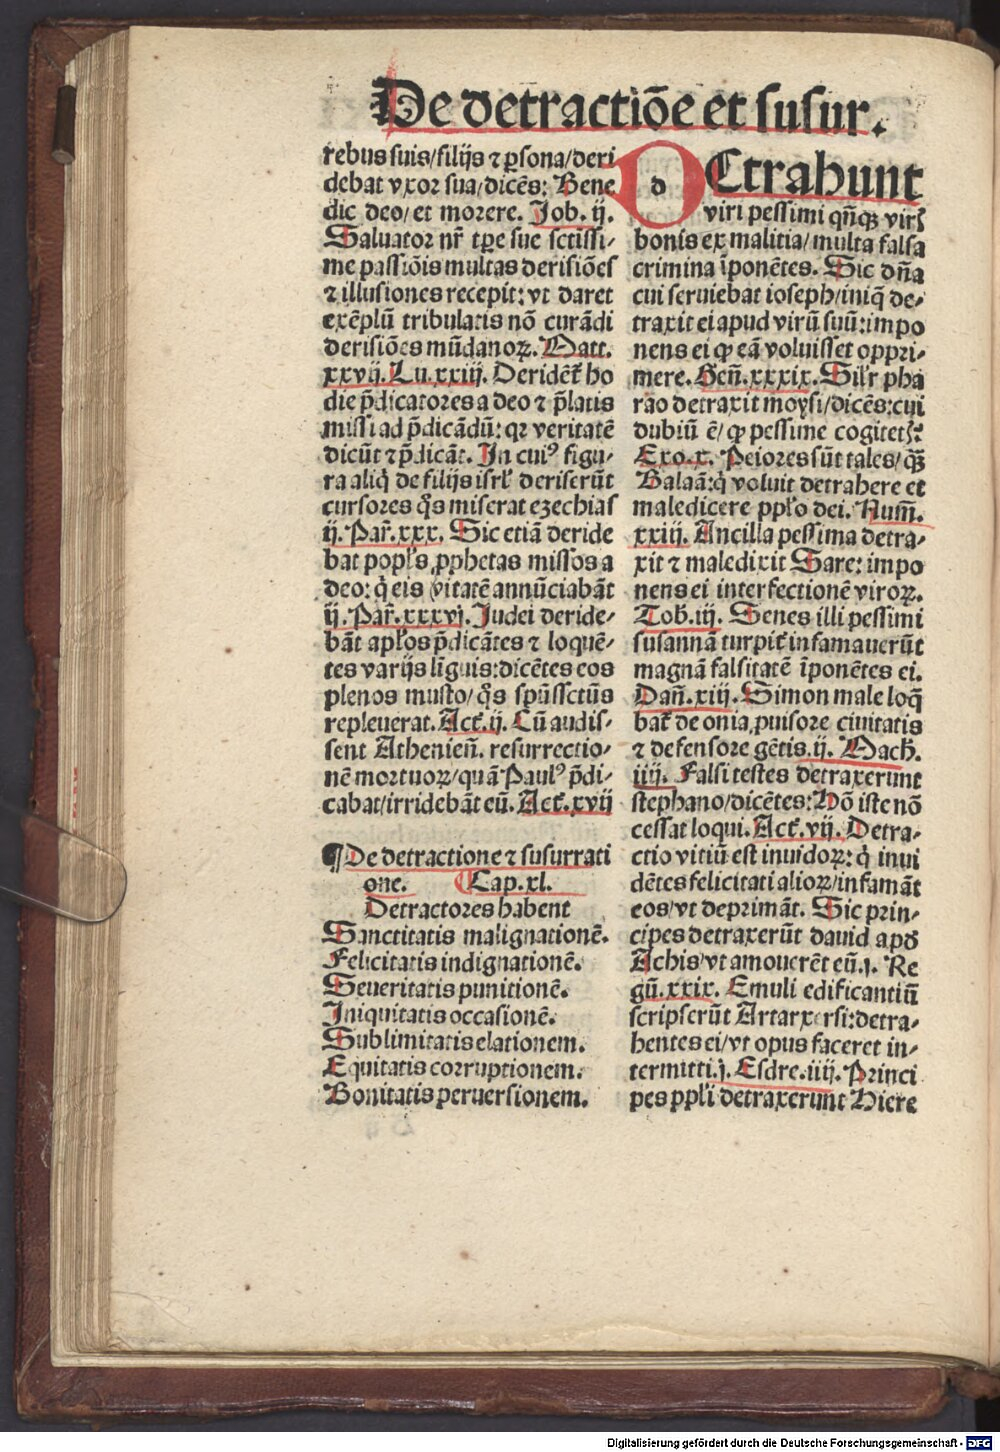 De detractiōe et susur.
rebus suis/filijs ⁊ ꝑsona/deri
debat vxor sua/dicēs: Bene
dic deo/et morere. Job. ij.
Saluator nr̄ tꝑe sue sctissi⸗
me passiōis multas derisiōes
⁊ illusiones recepit: vt daret
exēplū tribulatis nō curādi
derisiões mūdanoꝝ. Matt.
xxvij. Lu. xxiij. Deridēt᷑ ho
die p̄dicatores a deo ⁊ p̄latis
missi ad p̄dicādū: qꝛ veritatē
dicūt ⁊ p̄dicāt. In cuiꝰ figu⸗
ra aliq̇ de filijs isrl̓ deriserūt
cursores q̄s miserat ezechias
ij. Par̄. xxx. Sic etiā deride
bat popl̓s ꝓphetas missos a
deo: q̇ eis v̓itatē annūciabāt
ij. Par̄. xxxvj. Judei deride⸗
bāt apl̓os p̄dicātes ⁊ loquē⸗
tes varijs līguis: dicētes eos
plenos musto/q̄s spūssctūs
repleuerat. Act᷑. ij. Cū audis⸗
sent Athenieñ. resurrectio⸗
nē mortuoꝝ/quā Paulꝰ p̄di⸗
cabat/irridebāt eū. Act᷑. xvij
¶ De detractione ⁊ susurrati
one. Cap. xl.
Detractores habent
Sanctitatis malignationē.
Felicitatis indignationē.
Seueritatis punitionē.
Iniquitatis occasionē.
Sublimitatis elationem.
Equitatis corruptionem.
Bonitatis peruersionem.
d Etrahunt
viri pessimi qñqꝫ viris
bonis ex malitia/multa falsa
crimina īponētes. Sic dña
cui seruiebat ioseph/iniq̄ de⸗
traxit ei apud virū suū: impo
nens ei ꝙ eā voluisset oppri⸗
mere. Geñ. xxxix. Sil̓r pha
rao detraxit moysi/dicēs: cui
dubiū ē/ꝙ pessime cogitetis:
Exo. x. Peiores sūt tales/q̄ꝫ
Balaā: q̇ voluit detrahere et
maledicere ppl̓o dei. Num̄.
xxiij. Ancilla pessima detra⸗
xit ⁊ maledixit Sare: impo
nens ei interfectionē viroꝝ.
Tob̄. iij. Senes illi pessimi
susannā turpit᷑ infamauerūt
magnā falsitatē īponētes ei.
Dañ. xiij. Simon male loq̄
bat᷑ de onia ꝓuisore ciuitatis
⁊ defensore gētis. ij. Mach̄.
iiij. Falsi testes detraxerunt
stephano/dicētes: Hō iste nō
cessat loqui. Act᷑. vij. Detra⸗
ctio vitiū est inuidoꝝ: q̇ inui
dētes felicitati alioꝝ/infamāt
eos/vt deprimāt. Sic prin⸗
cipes detraxerūt dauid apđ
Achis/vt amouerēt eū. j. Re
gū. xxix. Emuli edificantiū
scripserūt Artarxersi: detra⸗
hentes ei/vt opus faceret in⸗
termitti. j. Esdre. iiij. Princi
pes ppl̓i detraxerunt Hiere
Digitalisierung gefördert durch die Deutsche Forschungsgemeinschaft - DFG